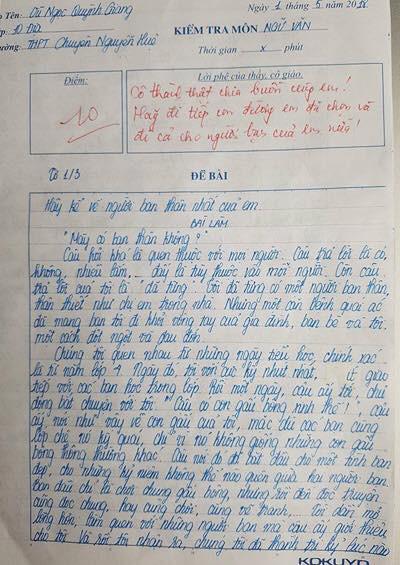 Tên: Vũ Ngọc Quỳnh Giang
Ngày 1 tháng 5 năm
Lớp: 10 Địa
KIỂM TRA MÔN NGỮ VĂN
Trường: THPT Chuyên Nguyễn Huệ
Thời gian x phút
Điểm:
10
Lời phê của thầy, cô giáo
Cô thành thật chia buồn cùng em!
Hãy đi tiếp con đường em đã chọn và
đi cả cho người bạn của em nữa!
Tờ 1/3
ĐỀ BÀI
Hãy kể về người bạn thân nhất của em
BÀI LÀM
"Mày có bạn thân không?"
Câu hỏi khá là quen thuộc với mọi người. Câu trả lời là có,
không, nhiều lắm,... đấy là tùy thuộc vào mỗi người. Còn câu
trả lời của tôi là "đã từng". Tôi đã từng có một người bạn thân,
thân thiết như chị em trong nhà. Nhưng một căn bệnh quái ác
đã mang bạn tôi đi khỏi vòng tay của gia đình, bạn bè và tôi
một cách đột ngột và đau đớn.
Chúng tôi quen nhau từ những ngày tiểu học, chính xác
là từ năm lớp 4. Ngày đó, tôi vốn cực kỳ nhút nhát, ít giao
tiếp với các bạn học trong lớp. Rồi một ngày, cậu ấy tới, chủ
động bắt chuyện với tôi: "Cậu có con gấu bông xinh thế!", cậu
ấy nói như vậy về con gấu của tôi, mặc dù các bạn cùng
lớp chê nó kỳ quái, chỉ vì nó không giống những con gấu
bông thông thường khác. Câu nói đó đã bắt đầu cho một tình bạn
đẹp, cho những kỷ niệm không thể nào quên giữa hai người bạn.
Ban đầu chỉ là chơi chung gấu bông, nhưng rồi đến đọc truyện
cũng đọc chung, hay cùng chơi, cùng vẽ tranh,... Tôi dần mở
lòng hơn, làm quen với những người bạn mà cậu ấy giới thiệu
cho tôi. Và rồi tôi nhận ra, chúng tôi đã thành tri kỷ lúc nào
KOKUYO